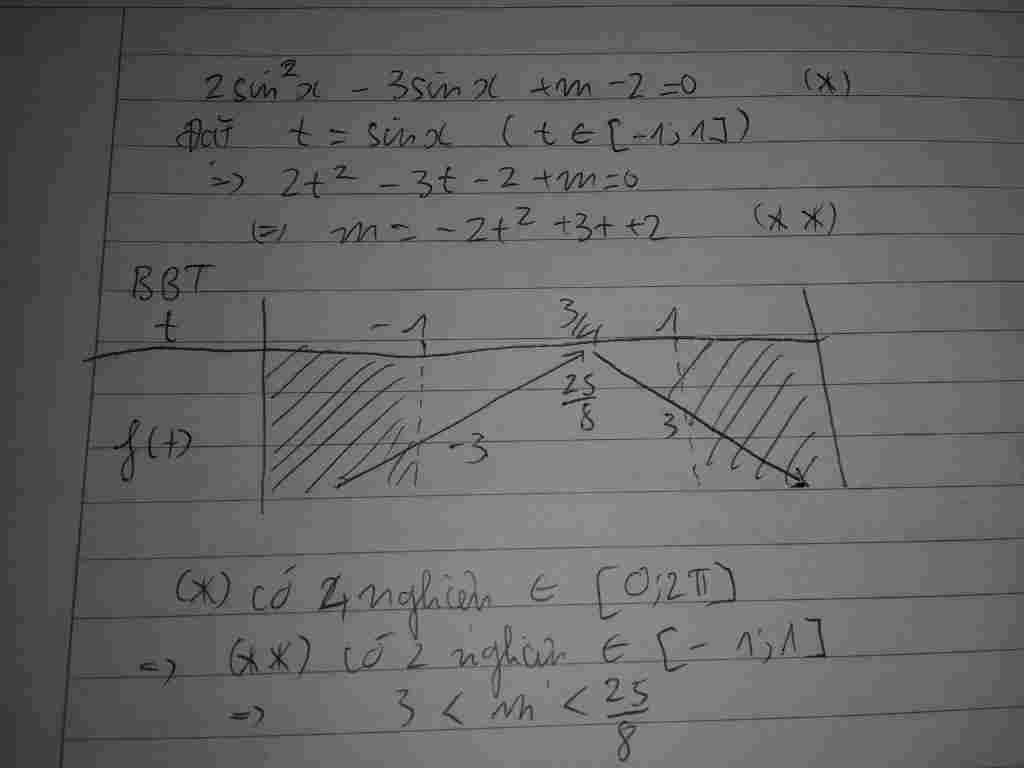 2sin²x - 3sinx + m - 2 = 0 (*)
Đặt t = sinx (t ∈ [-1; 1])
=> 2t² - 3t - 2 + m = 0
<=> m = -2t² + 3t + 2 (**)
BBT
t -1 3/4 1
f(t) -3 25/8 3
(*) có 4 nghiệm ∈ [0; 2π]
=> (**) có 2 nghiệm ∈ [-1; 1]
=> 3 < m < 25/8